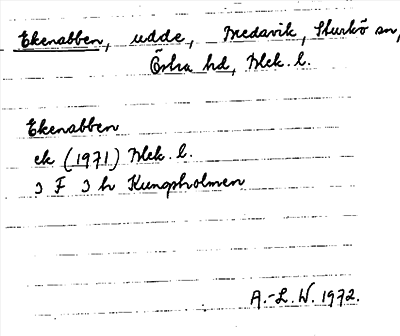 Ekenabben, udde, Bredavik, Sturkö sn,
Östra hd, Blek. l.
Ekenabben
ek (1971) Blek. l.
3 F 3 h Kungsholmen
A.-L. W. 1972.